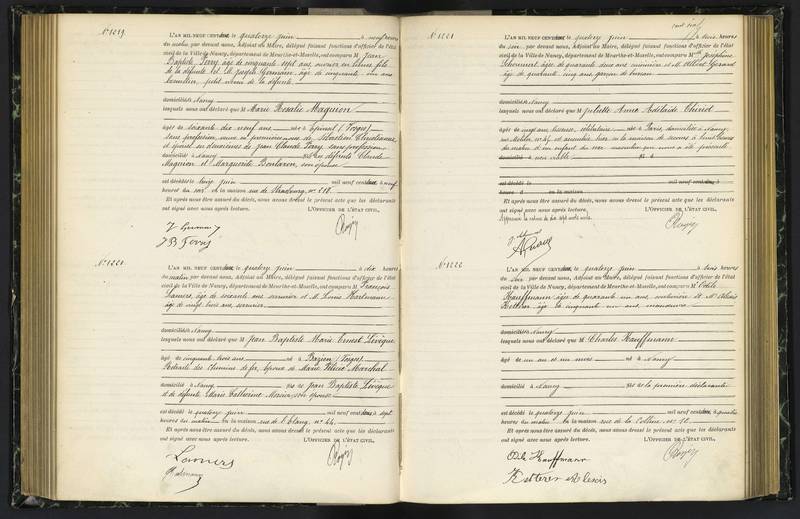 N° 1219
L'AN MIL NEUF CENT deux le quatorze juin à neuf heures
du matin par devant nous, Adjoint au Maire, délégué faisant fonctions d'officier de l'état
civil de la Ville de Nancy, département de Meurthe-et-Moselle, ont comparu M Jean
Baptiste Ferry, âgé de cinquante sept ans, ouvrier en limes fils
de la défunte et M Joseph Germain, âgé de cinquante un ans
petit neveu de la défunte
domiciliés à Nancy
lesquels nous ont déclaré que M Marie Rosalie Magnion
âgée de soixante dix neuf ans née à Epinal (Vosges)
sans profession, veuve en premières noces de Sébastien Christianne
et épouse en deuxièmes de Jean Claude Ferry sans profession
domiciliée à Nancy fille des défunts Claude
Magnion et Marguerite Bontaron, son épouse
est décédée le treize juin mil neuf cent deux à neuf
heures du soir en la maison rue de Strasbourg, n° 218
Et après nous être assuré du décès, nous avons dressé le présent acte que les déclarants
ont signé avec nous après lecture. L'OFFICIER DE L'ÉTAT CIVIL,
J B Ferry
N° 1220
L'AN MIL NEUF CENT deux le quatorze juin à dix heures
du matin par devant nous, Adjoint au Maire, délégué faisant fonctions d'officier de l'état
civil de la Ville de Nancy, département de Meurthe-et-Moselle, ont comparu M François
Lamers, âgé de soixante ans serrurier et M. Louis Hartmann
âgé de vingt huit ans, serrurier
domiciliés à Nancy
lesquels nous ont déclaré que M Jean Baptiste Marie Ernest Lévêque
âgé de cinquante trois ans né à Bazien (Vosges)
Retraité des chemins de fer, époux de Marie Félicie Marchal
domicilié à Nancy fils de Jean Baptiste Lévêque
et de défunte Marie Catherine Mercier, son épouse
est décédé le quatorze juin mil neuf cent deux à sept
heures du matin en la maison rue de l'Etang, n° 44
Et après nous être assuré du décès, nous avons dressé le présent acte que les déclarants
ont signé avec nous après lecture. L'OFFICIER DE L'ÉTAT CIVIL,
Lamers
N° 1221
L'AN MIL NEUF CENT deux le quatorze juin à trois heures
du soir par devant nous, Adjoint au Maire, délégué faisant fonctions d'officier de l'état
civil de la Ville de Nancy, département de Meurthe-et-Moselle, ont comparu M Joséphine
âgée de quarante deux ans et M. Albert Gérard
âgé de quarante cinq ans garçon de bureau
domiciliés à Nancy
lesquels nous ont déclaré que Juliette Anna Adélaïde Thiriot
âgée de vingt ans lisseuse, célibataire née à Paris, domiciliée à Nancy
est accouchée hier en la maison de secours à huit heures
du matin d'un enfant du sexe masculin qui nous a été présenté
domicilié à non viable
est décédé le mil neuf cent deux à
heures d en la maison
Et après nous être assuré du décès, nous avons dressé le présent acte que les déclarants
ont signé avec nous après lecture. L'OFFICIER DE L'ÉTAT CIVIL,
N° 1222
L'AN MIL NEUF CENT deux le quatorze juin à trois heures
du soir par devant nous, Adjoint au Maire, délégué faisant fonctions d'officier de l'état
civil de la Ville de Nancy, département de Meurthe-et-Moselle, ont comparu M Odile
Hauffmann âgée de quarante un ans, et M. Alexis
Ketterer âgé de cinquante un ans, manœuvre
domiciliés à Nancy
lesquels nous ont déclaré que M Charles Hauffmann
âgé de un an et un mois né à Nancy
domicilié à Nancy fils de la première déclarante
est décédé le quatorze juin mil neuf cent deux à quatre
heures du matin en la maison rue de la Colline, n° 10
Et après nous être assuré du décès, nous avons dressé le présent acte que les déclarants
ont signé avec nous après lecture. L'OFFICIER DE L'ÉTAT CIVIL,
Odile Hauffmann
Ketterer Alexis